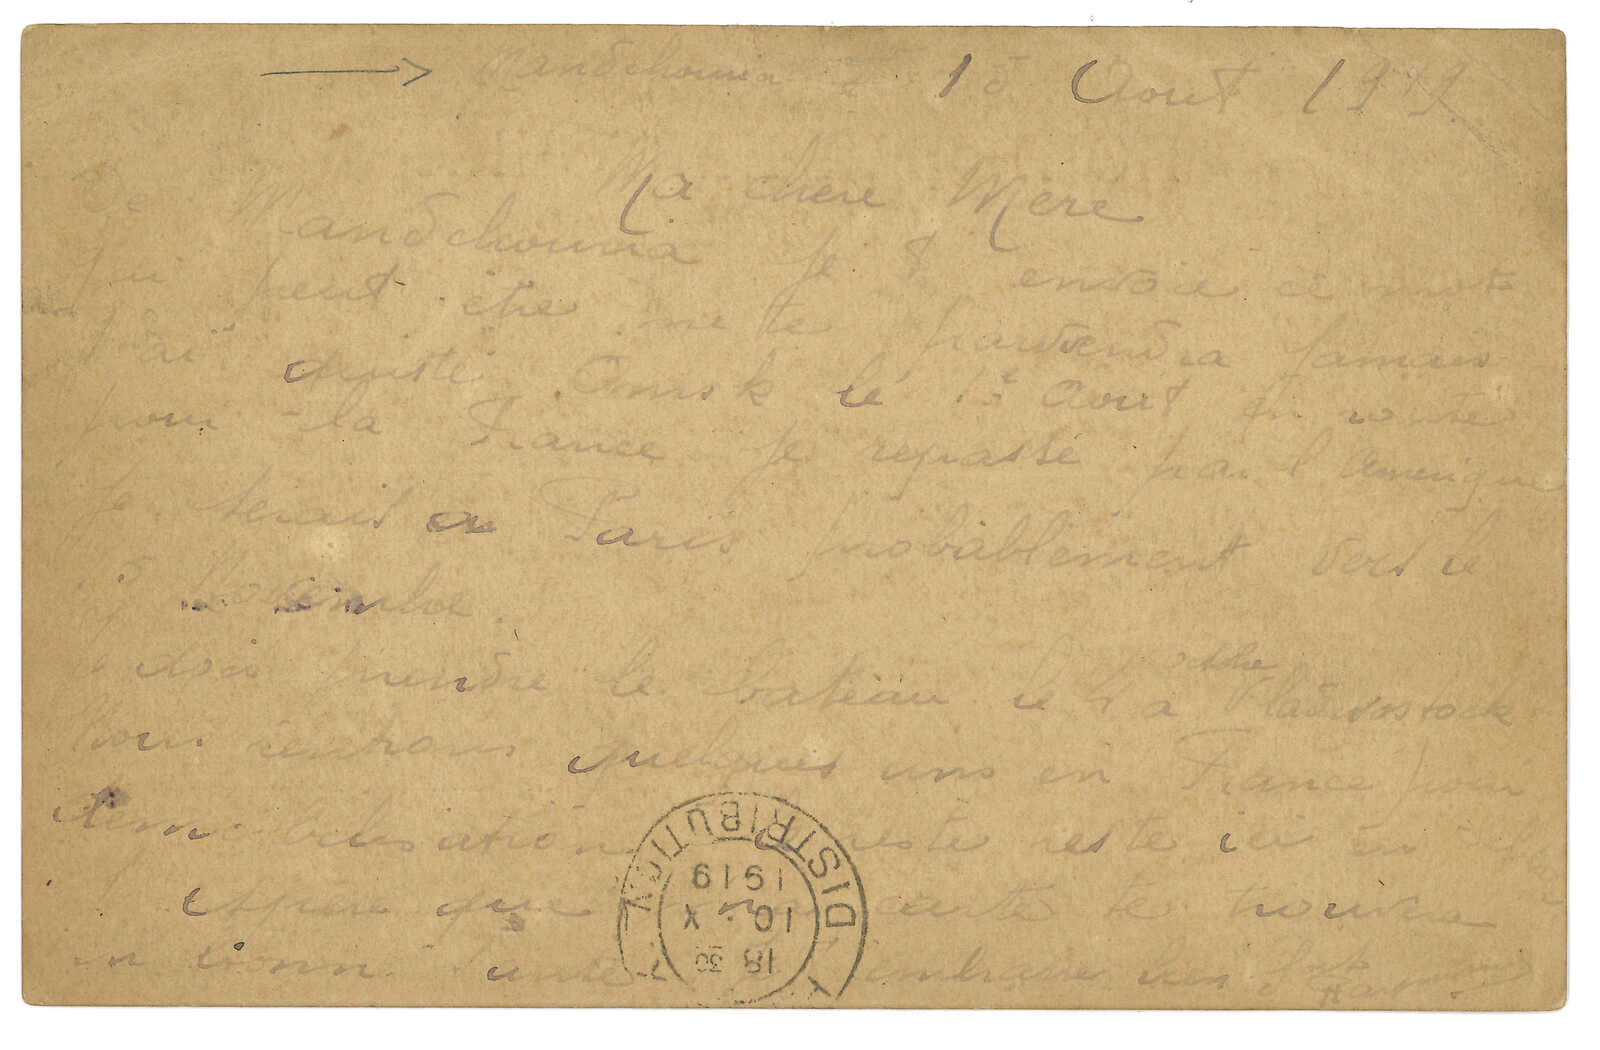 → Mandchouria 15 Aout 1919.
Ma chere Mere
De Mandchouria Je t envoie ce mot
qui peut etre ne te parviendra jamais
J'ai quitté Omsk le Aout en route
pour la France Je repasse par l'amerique
Je serais a Paris probablement vers le
5 Novembre.
Je dois prendre le bateau le a Vladivostock
Nous rentrons quelques uns en France pour
demobilisation reste reste ici
J espere que carte te trouvera
en bonne santé embrasse
DISTRIBUTION
1919
10.X
18 30